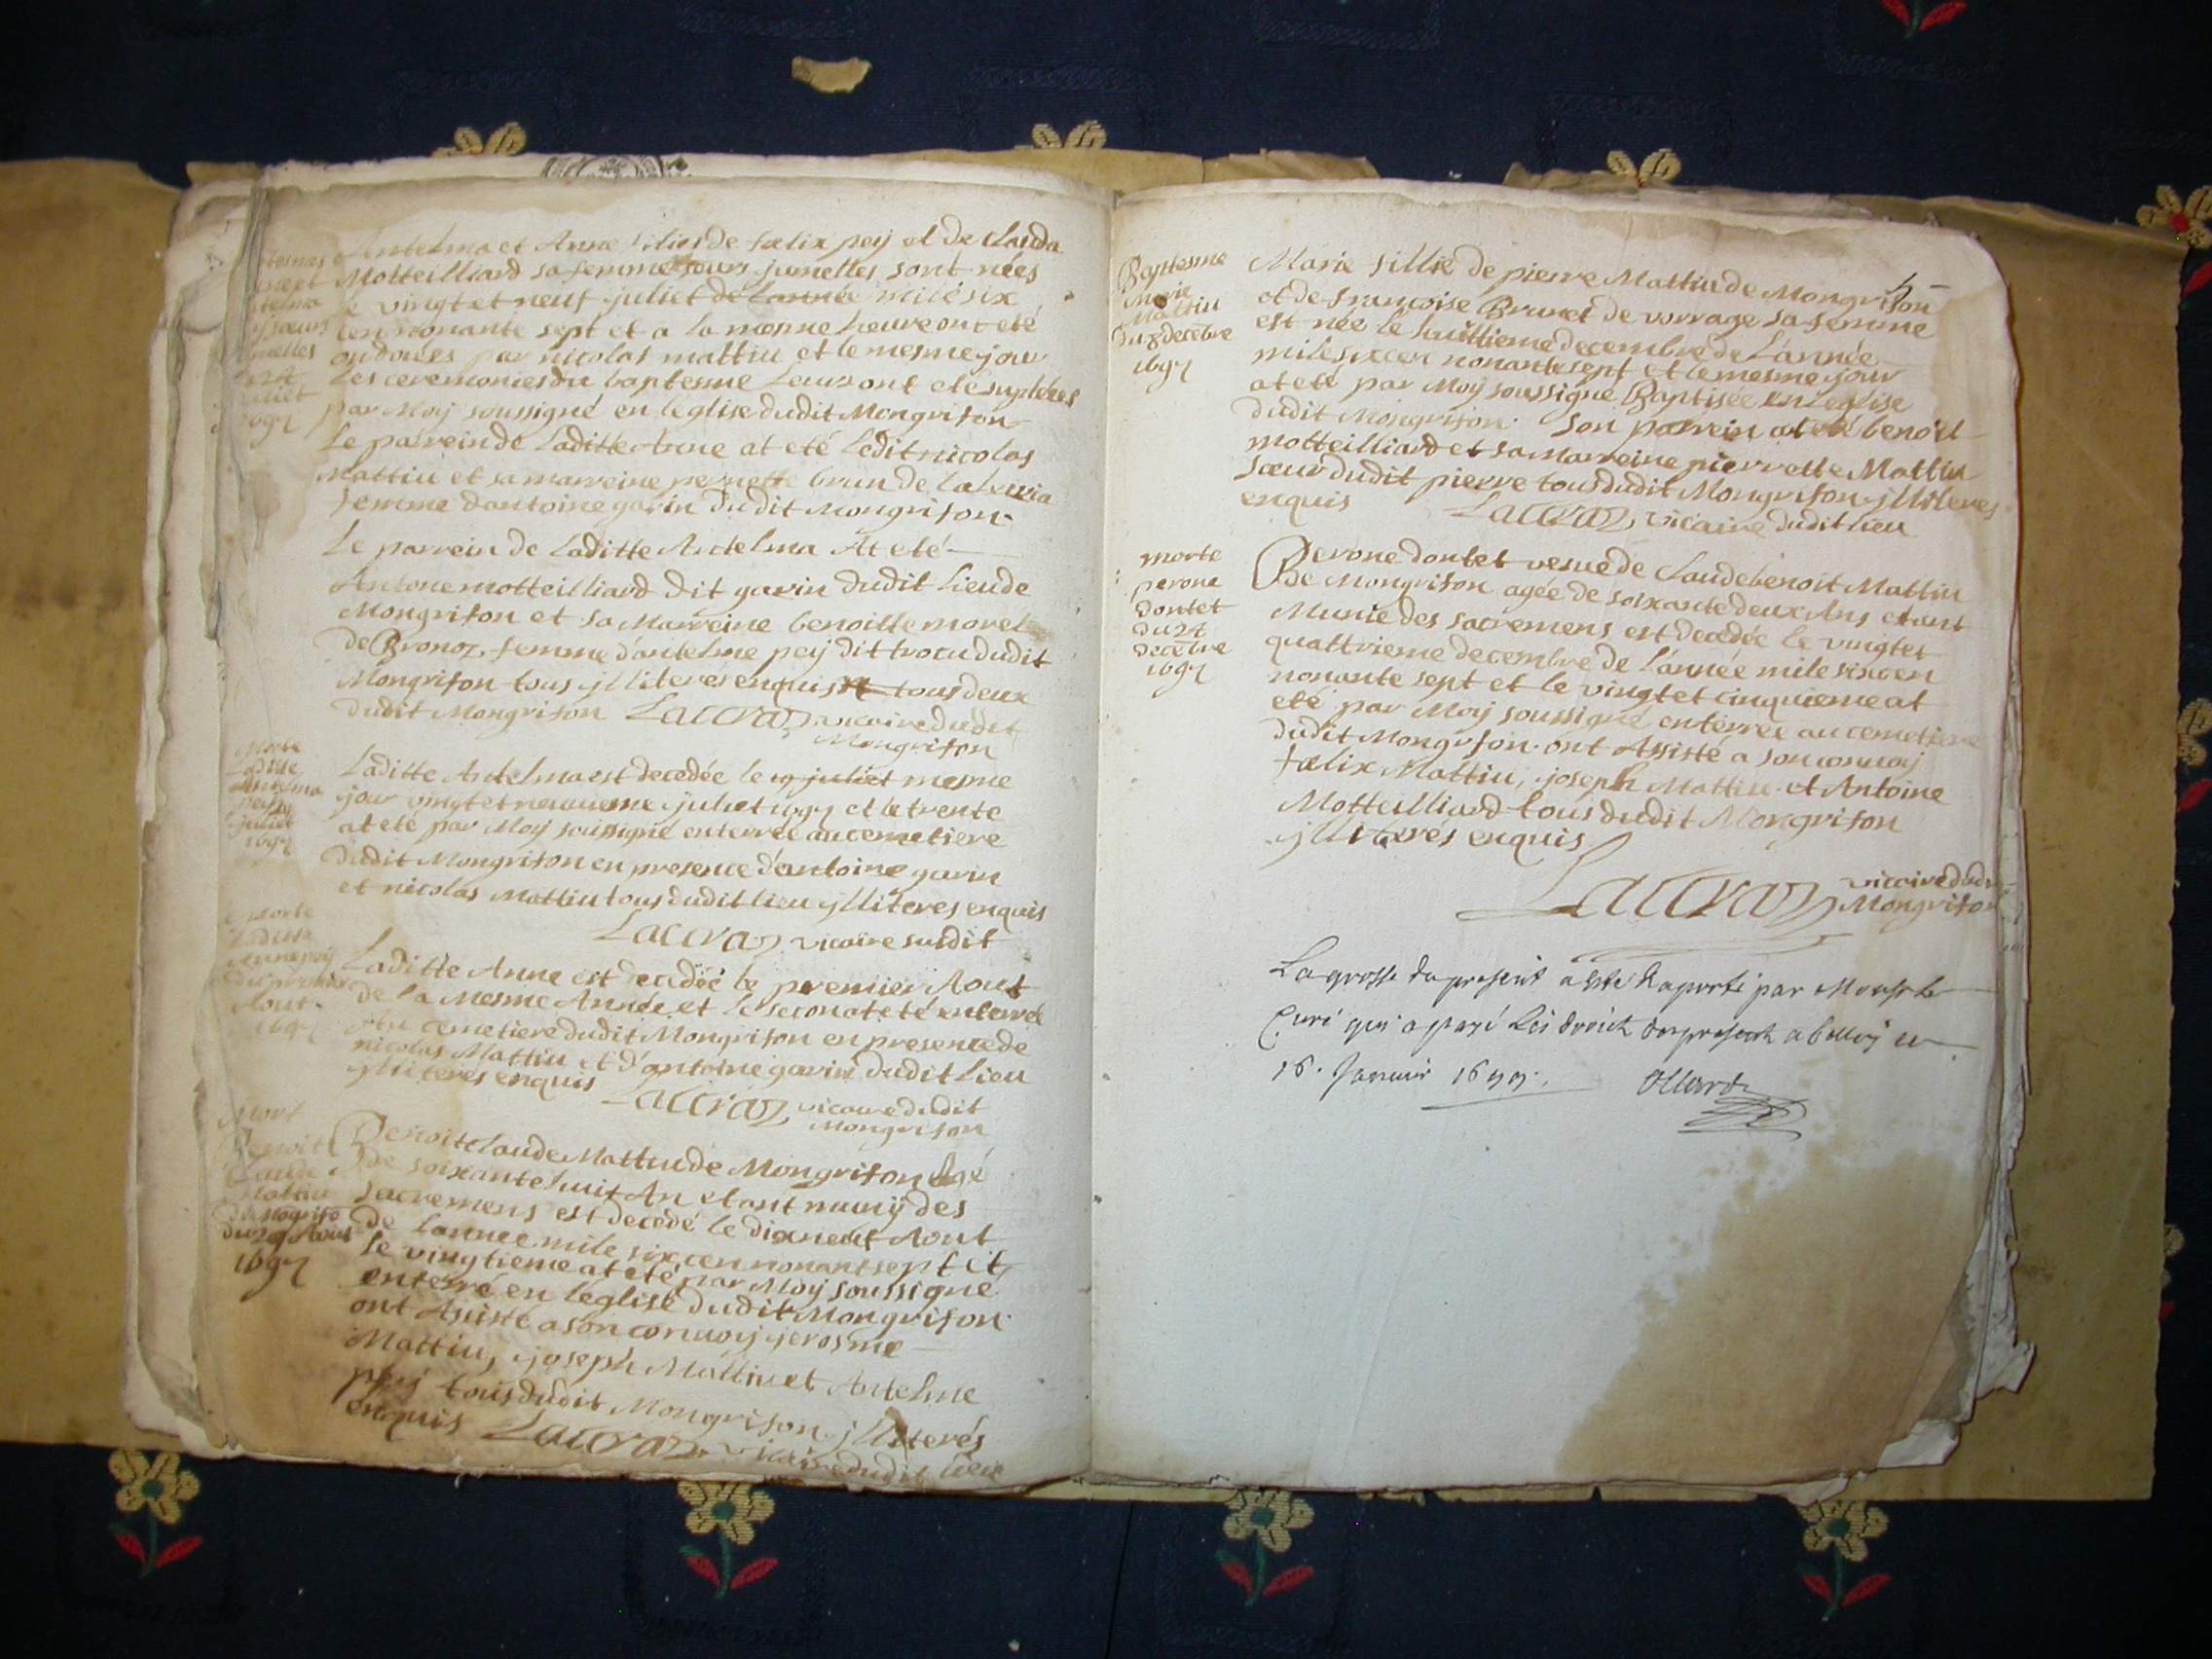 Antelma et Anne filies de fœlix peÿ et de Clauda
Motteilliard sa femme sœurs jumelles sont nées
le vingt et neuf juliet de l'année mile six
cen nonante sept et a la mesme heure ont eté
ondoiées par nicolas mattiu et le mesme jour
les ceremonies du baptesme leurs ont eté suplées
par Moÿ soussigné en l'eglise dudit Mongrifon
Le parrein de laditte Anne at eté ledit nicolas
Mattiu et sa marreine pernette brun de
femme d'antoine gavin dudit Mongrifon.
Le parrein de laditte Antelma At eté
Antoine motteilliard dit gavin dudit lieu de
Mongrifon et sa Marreine benoitte morel
de Bronoz, femme d'antelme peÿ dit trocu dudit
Mongrifon tous jlliterés enquis tous deux
dudit Mongrifon Laccraz vicaire dudit
Mongrifon
Morte
laditte
Antelma
peÿ
juliet
1697
Laditte Antelma est decedée le 29 juliet mesme
jour vingt et neuvieme juliet 1697 et le trente
at eté par Moÿ soussigné enterrée au cemetiere
dudit Mongrifon en presence d'antoine gavin
et nicolas Mattiu tous dudit lieu jlliteres enquis
Laccraz vicaire susdit
morte
laditte
Anne peÿ
du premier
Aout
1697
Laditte Anne est decedée le premier Aout
de la Mesme Année et le second at eté enterrée
Au cemetiere dudit Mongrifon en presence de
nicolas Mattiu et d'antoine gavin dudit lieu
jlliteres enquis Laccraz vicaire dudit
Mongrifon
Mort
Benoit
Claude
Mattiu
de Mogrifo
du 19 Aout
1697
Benoit Claude Mattiu de Mongrifon Agé
de soixante huit An etant muny des
sacremens est decedé le dixneuf Aout
de l'année mile six cen nonant sept et
le vingtieme at eté par Moÿ soussigné
enterré en l'eglise dudit Mongrifon.
ont Assisté a son convoÿ jerosme
Mattiu, joseph Mattiu et Antelme
peÿ tous dudit Mongrifon jlliterés
enquis Laccraz vicaire dudit lieu
Baptesme
Marie
Mattiu
du 8 decebre
1697
Marie fillie de pierre Mattiu de Mongrifon
et de françoise Brunet de vorrage sa femme
est née le huittieme decembre de l'année
mile six cen nonante sept et le mesme jour
at eté par Moÿ soussigné Baptisée en l'eglise
dudit Mongrifon. Son parrein at eté benoit
motteilliard et sa Marreine pierrette Mattiu
sœur dudit pierre tous dudit Mongrifon jlliteres
enquis Laccraz vicaire dudit lieu
morte
perone
dontet
du 24
decebre
1697
Perone dontet vesue de Claude benoit Mattiu
de Mongrifon agée de soixante deux Ans etant
Munie des sacremens est decedée le vingtet
quattrieme decembre de l'année mile six cen
nonante sept et le vingt et cinquieme at
eté par Moÿ soussigné enterrée au cemetiere
dudit Mongrifon. ont Assisté a son convoÿ
fœlix Mattiu, joseph Mattiu et Antoine
Motteilliard tous dudit Mongrifon
jlliterés enquis
Laccraz vicaire dudit
Mongrifon
La grosse du present a esté Raporté par Monsr le
Curé qui a payé les droict du present a belley ce
16. Janvier 1699. Ollard